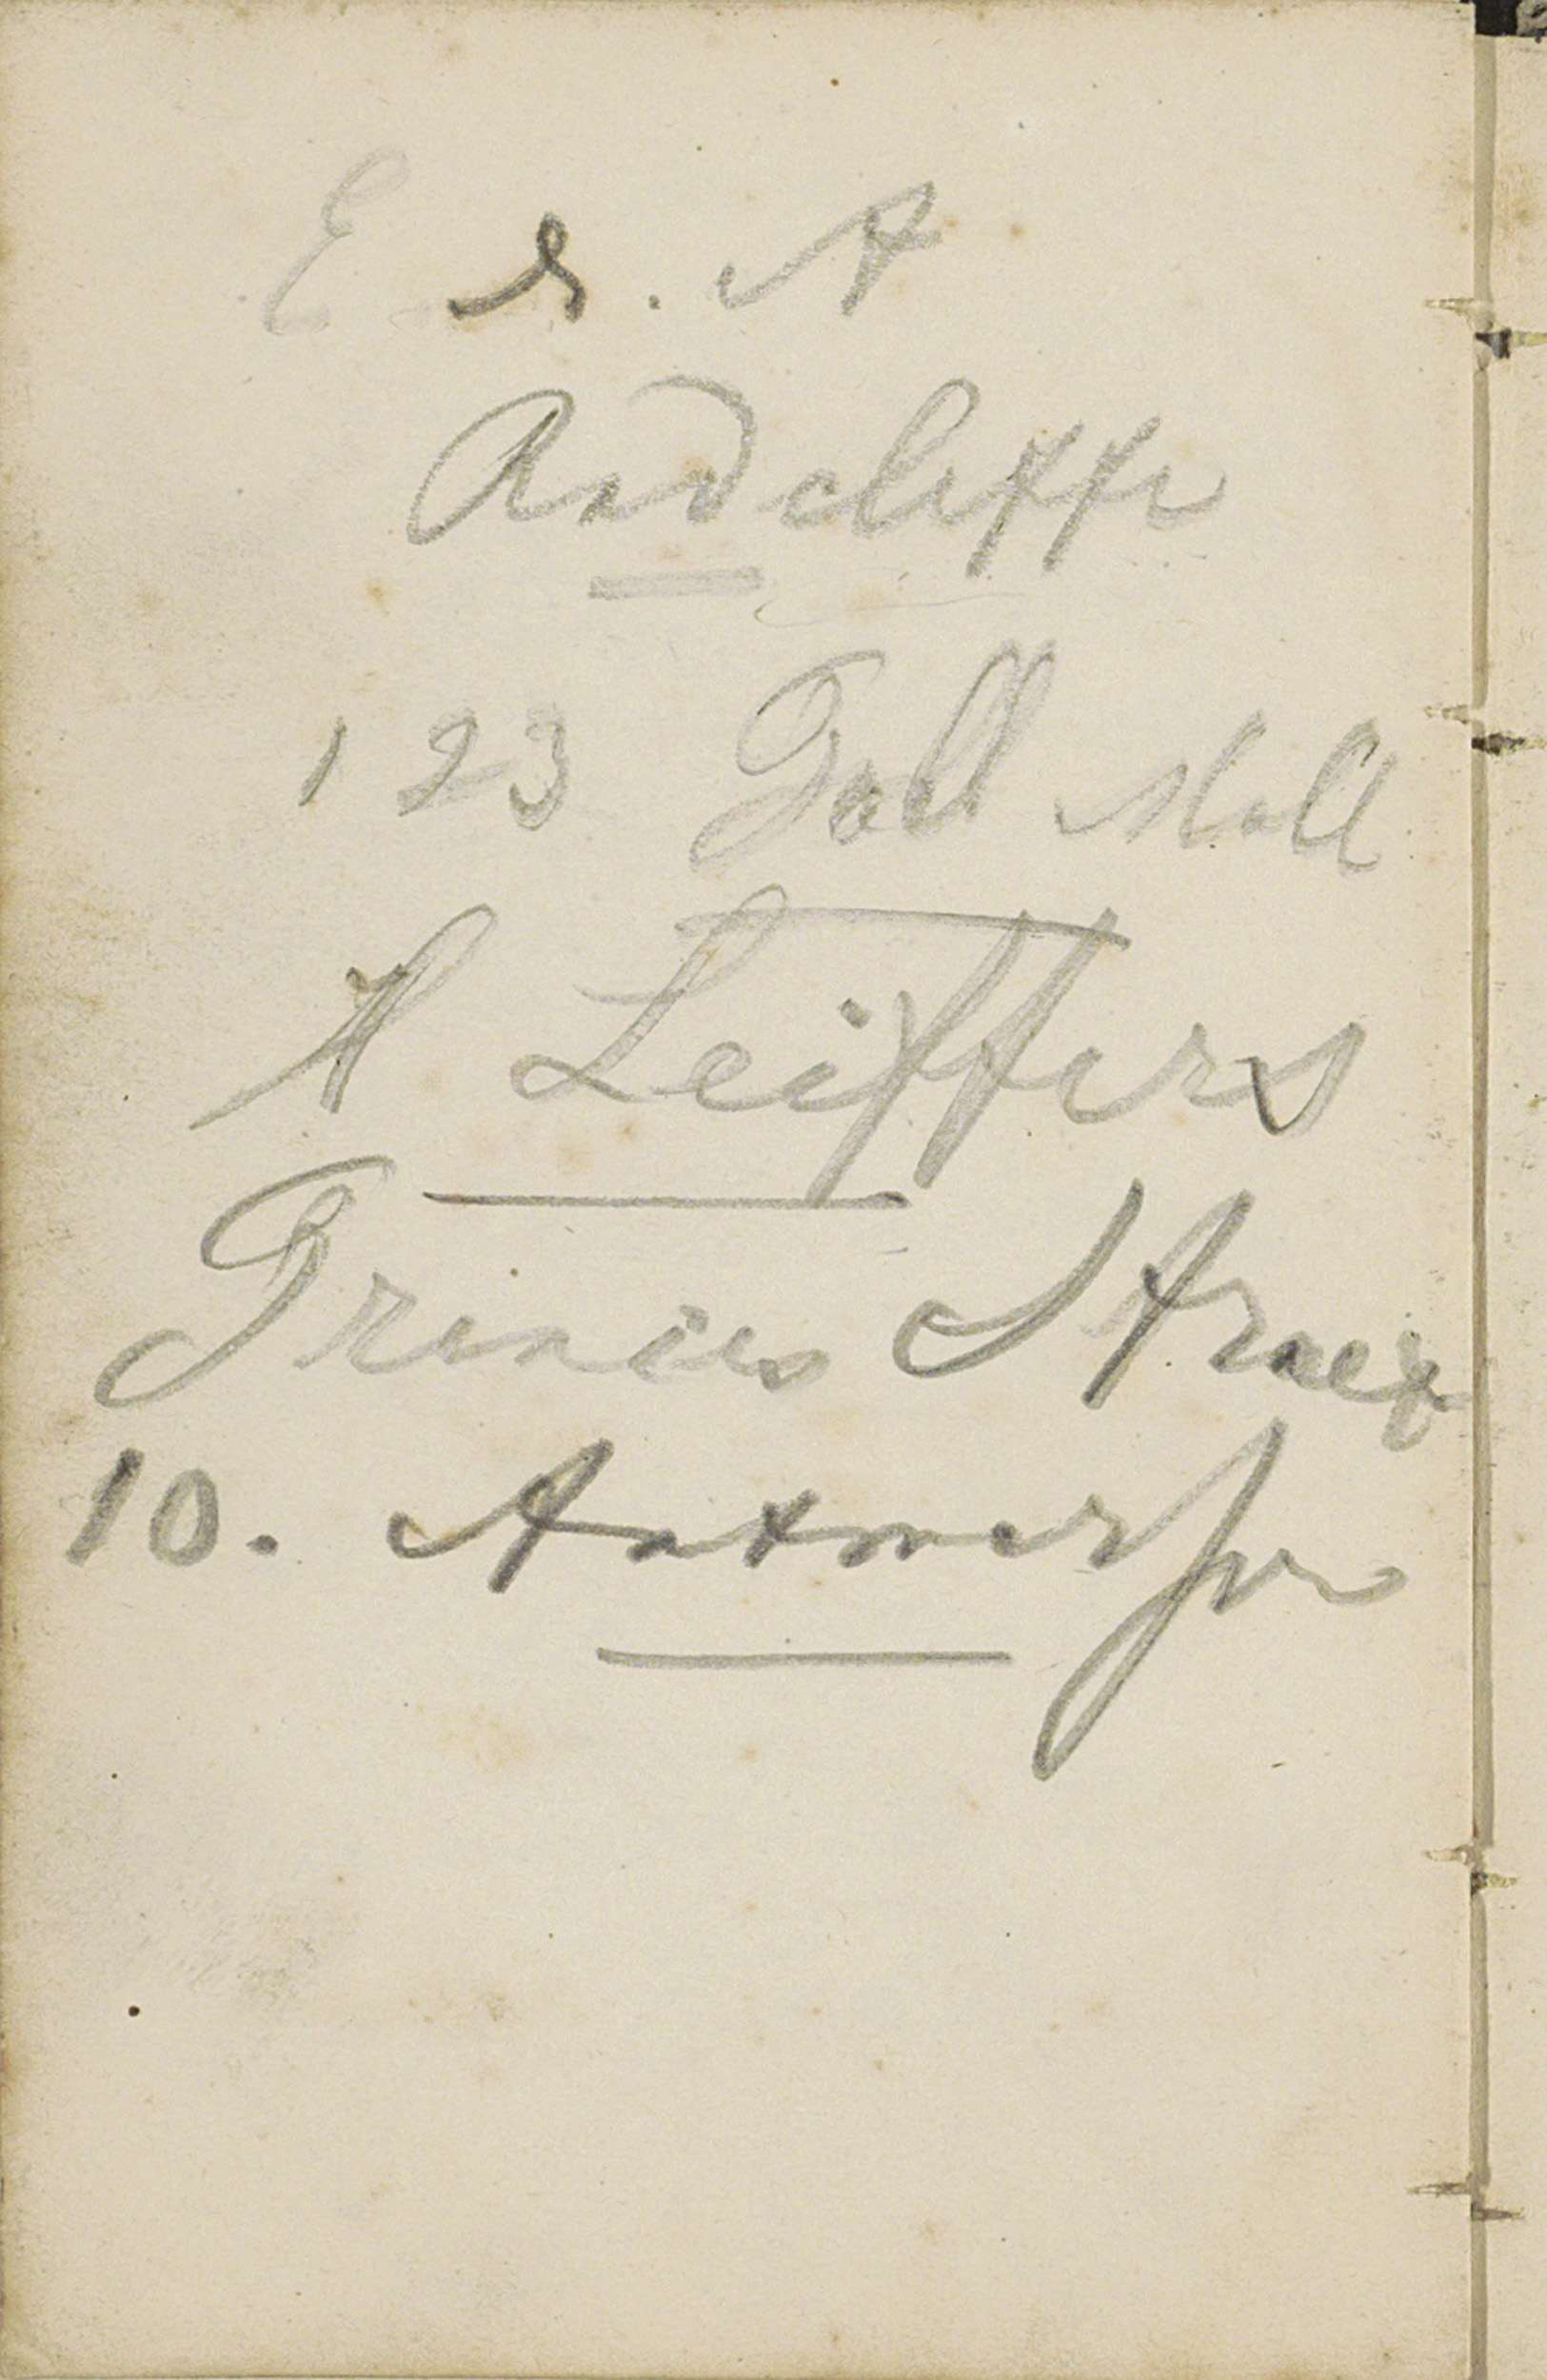 E S. A
Radcliffe
123 Pall Mall
A Leiffers
Princes Straet
10. Antwerpen